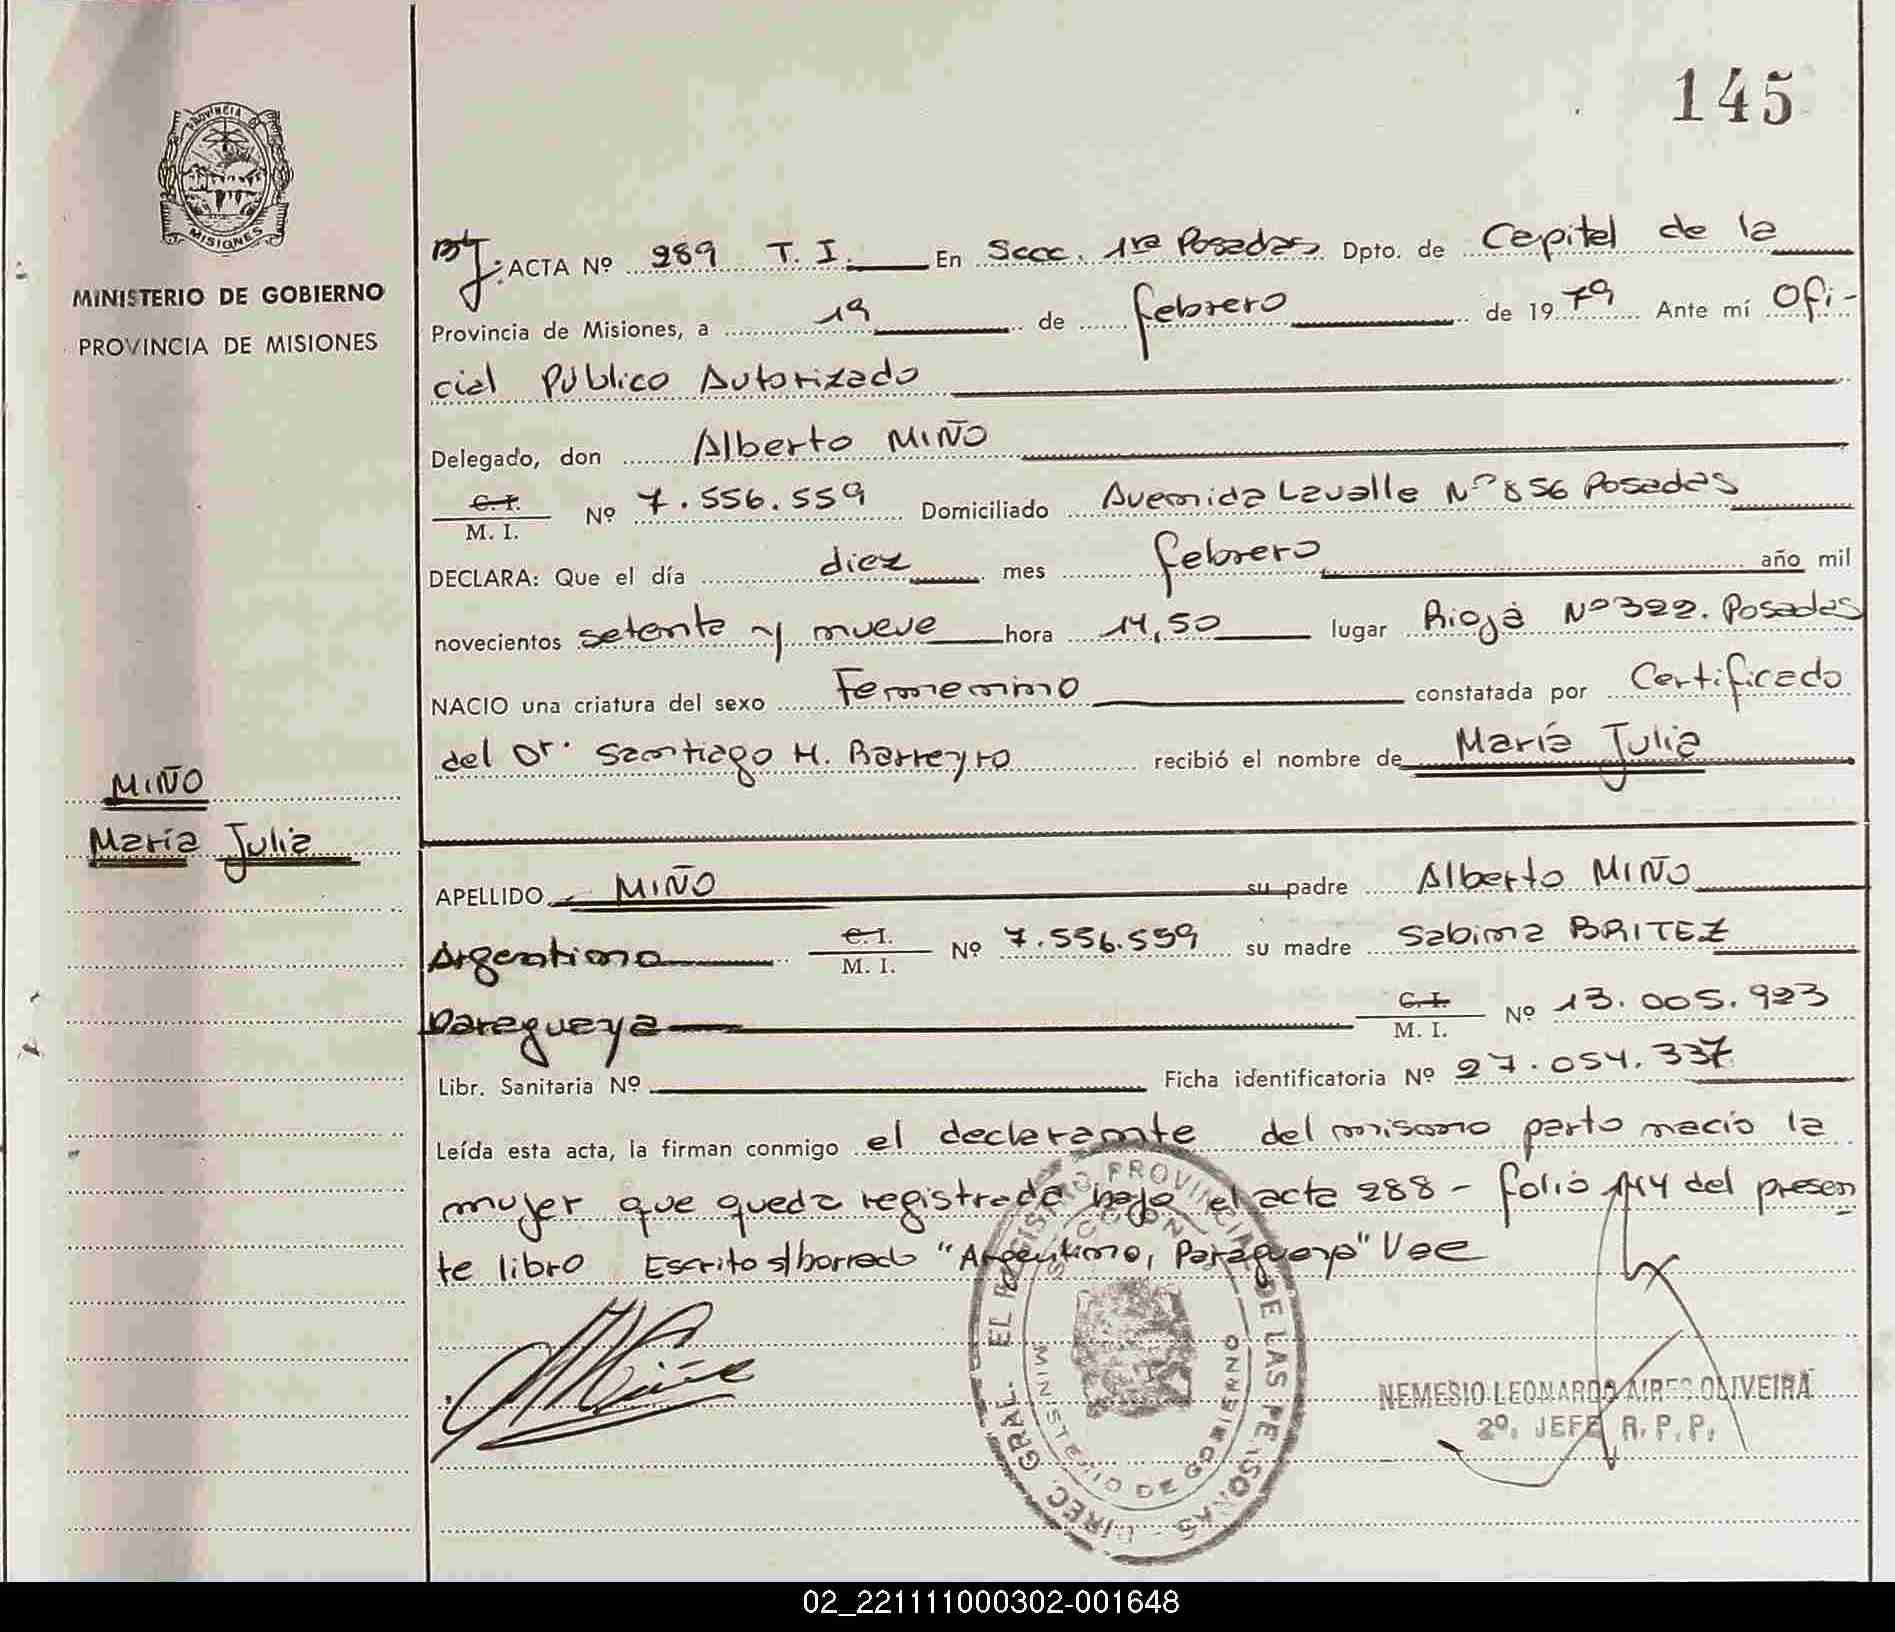 145
PROVINCIA DE
MISIONES
MINISTERIO DE GOBIERNO
PROVINCIA DE MISIONES
ACTA Nº 289 T. I. En Secc. 1ra Posadas Dpto. de Capital de la
Provincia de Misiones, a 19 de febrero de 1979 Ante mí Ofi-
cial Público Autorizado
Delegado, don Alberto MIÑO
C. I.
M. I. Nº 7.556.559 Domiciliado Avenida Lavalle Nº 856 Posadas
DECLARA: Que el día diez mes febrero año mil
novecientos setenta y nueve hora 14,50 lugar Rioja Nº 322. Posadas
NACIO una criatura del sexo Femenino constatada por Certificado
del Dr. Santiago H. Barreyro recibió el nombre de María Julia
MIÑO
María Julia
APELLIDO MIÑO su padre Alberto MIÑO
Argentino C. I.
M. I. Nº 7.556.559 su madre Sabina BRITEZ
Paraguaya C. I.
M. I. Nº 13.005.923
Libr. Sanitaria Nº Ficha identificatoria Nº 27.054.337
Leída esta acta, la firman conmigo el declarante del mismo parto nacio la
mujer que queda registrada bajo el acta 288 - folio 144 del presen
te libro Escrito s/borrado "Argentino, Paraguaya" Vale
DIREC. GRAL. EL REGISTRO PROVINCIAL DE LAS PERSONAS
SECCION
MINISTERIO DE GOBIERNO
NEMESIO LEONARDO AIRES OLIVEIRA
2º. JEFE R. P. P.
02_221111000302-001648